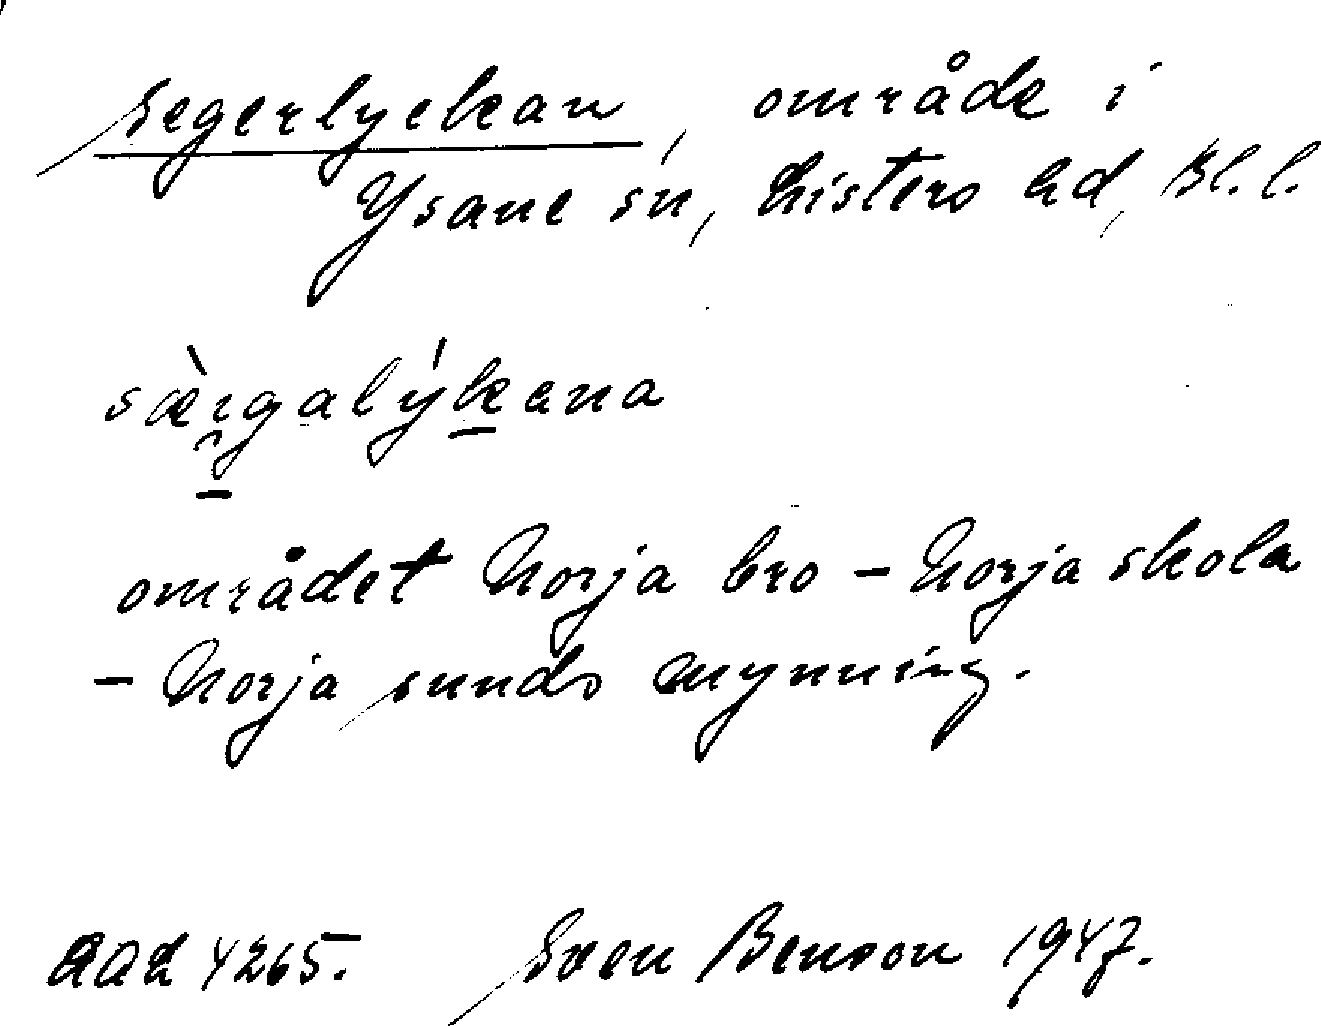 Segerlyckan, område i
Ysane sn, Listers hd, Bl. l.
sæ̀rgalýkana
området Norja bro – Norja skola
– Norja sunds mynning.
4265. Sven Benson 1947.